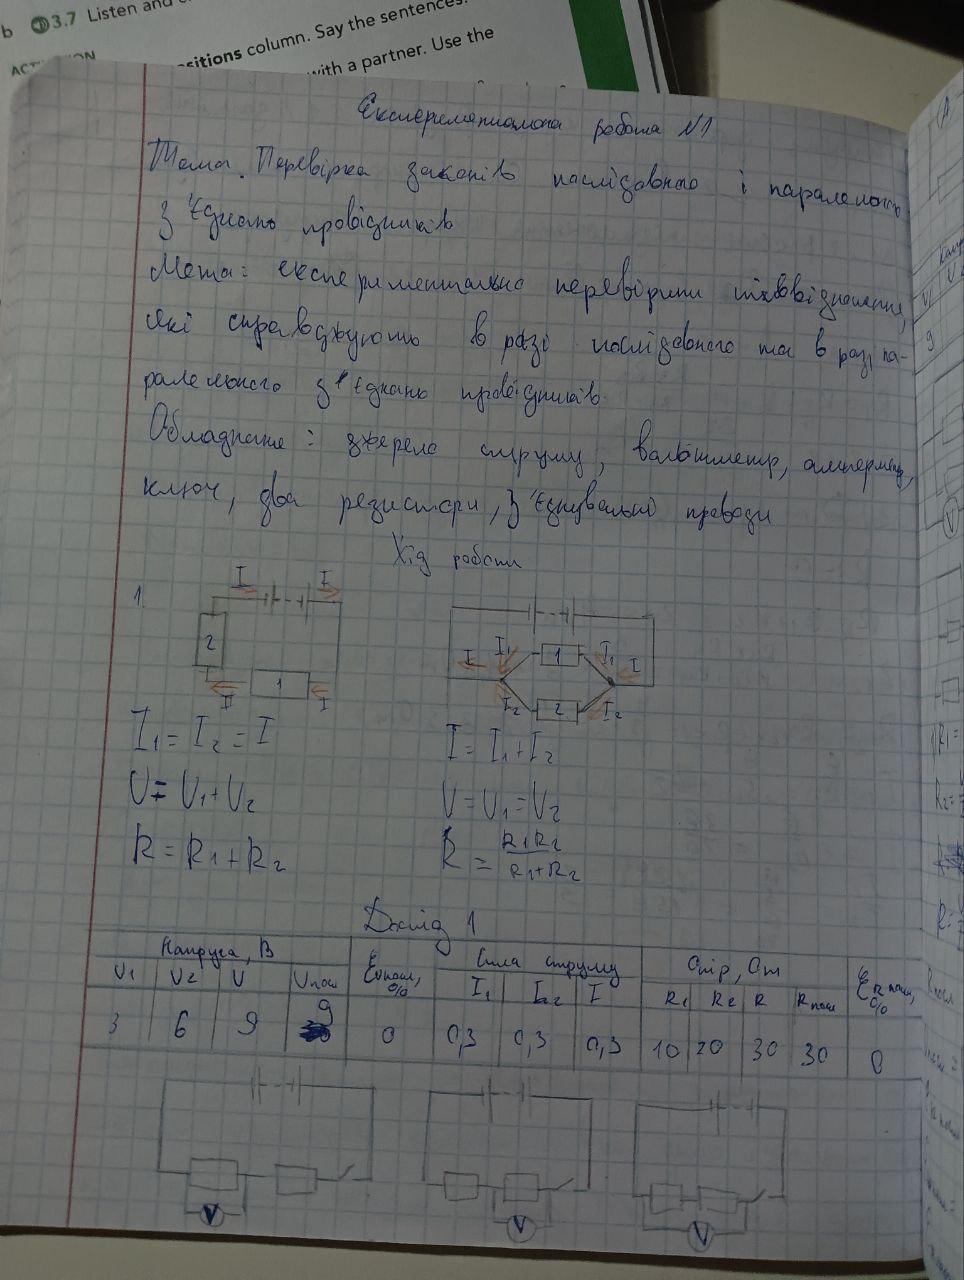 b 3.7 Listen and
sitions column. Say the sentences.
with a partner. Use the
Експериментальна робота N1
Тема. Перевірка законів послідовного і паралельного
з'єднань провідників
Мета: експериментально перевірити співвідношення,
які справджують в разі послідовного та в разі па-
ралельного з'єднань провідників.
Обладнання: джерело струму, вольтметр, амперметр,
ключ, два резистори, з'єднувальні проводи
Хід роботи
1.
I I
2
1
I I
I I₁ 1 I₁ I
I₂ 2 I₂
I₁ = I₂ = I
U = U₁ + U₂
R = R₁ + R₂
I = I₁ + I₂
U = U₁ = U₂
R = R₁R₂ / R₁+R₂
Дослід 1
Напруга, В Eᵤпосл, % Сила струму Опір, Ом E R посл, %
U₁ U₂ U Uпосл I₁ I₂ I R₁ R₂ R Rпосл
3 6 9 9 0 0,3 0,3 0,3 10 20 30 30 0
V V V